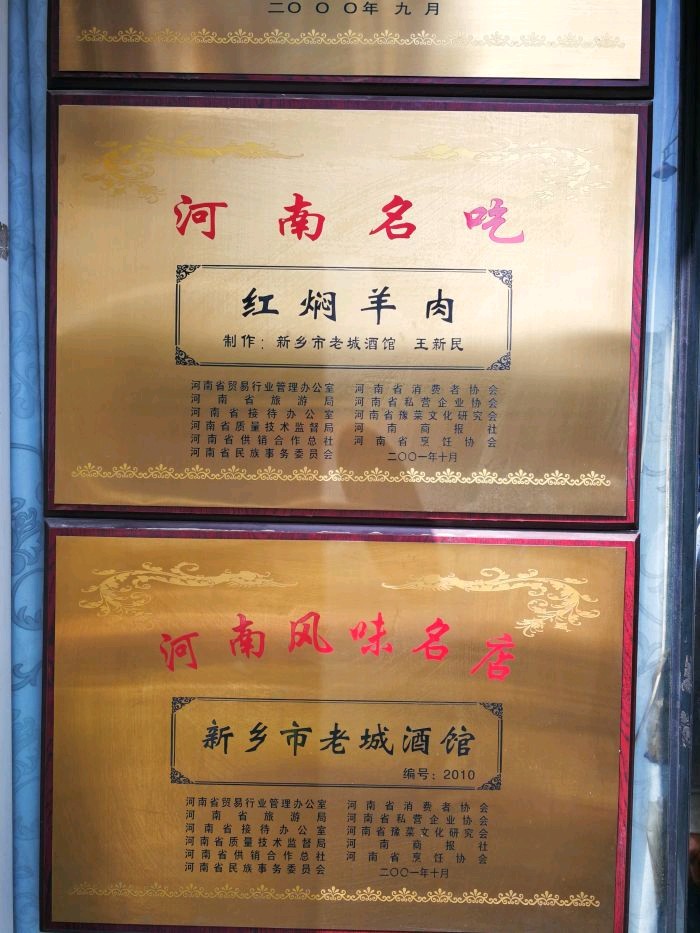 二〇〇〇年 九月
河南名吃
红焖羊肉
制作：新乡市老城酒馆 王新民
河南省贸易行业管理办公室
河南省旅游局
河南省接待办公室
河南省质量技术监督局
河南省供销合作总社
河南省民族事务委员会
河南省消费者协会
河南省私营企业协会
河南省豫菜文化研究会
河南商报社
河南省烹饪协会
二〇〇一年十月
河南风味名店
新乡市老城酒馆
编号：2010
河南省贸易行业管理办公室
河南省旅游局
河南省接待办公室
河南省质量技术监督局
河南省供销合作总社
河南省民族事务委员会
河南省消费者协会
河南省私营企业协会
河南省豫菜文化研究会
河南商报社
河南省烹饪协会
二〇〇一年十月